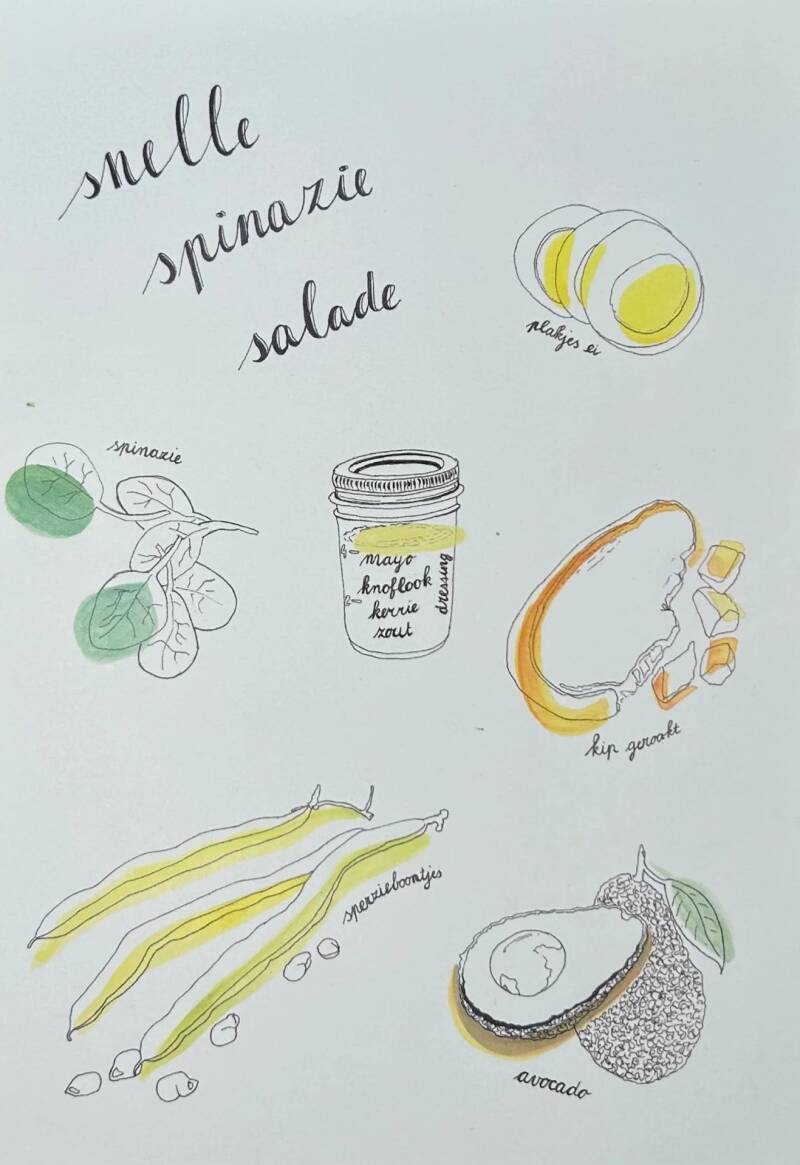 snelle
spinazie
salade
plakjes ei
spinazie
mayo
knoflook
kerrie
zout
dressing
kip gerookt
sperzieboontjes
avocado